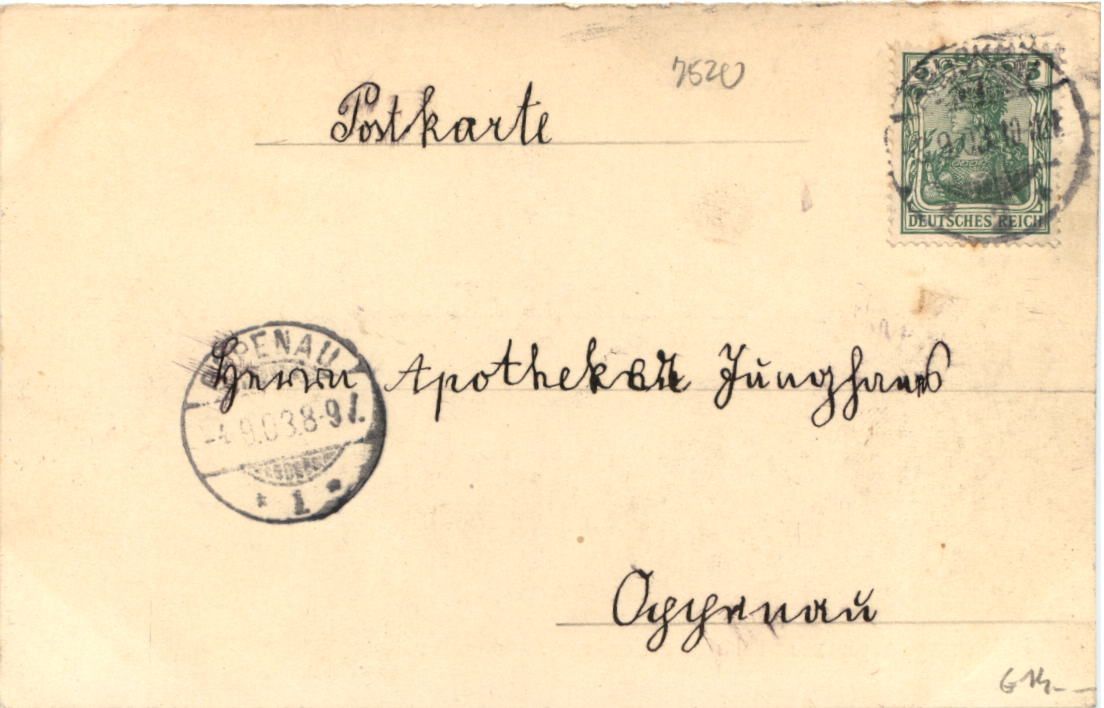 7520
Postkarte
DEUTSCHES REICH
OPPENAU
-4.9.03.8-9V.
* 1 *
Herrn Apotheker Junghans
Oppenau